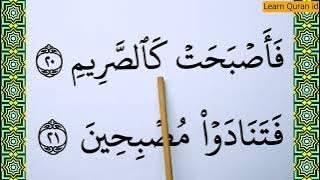 Learn Quran id
فَأَصْبَحَتْ كَٱلصَّرِيمِ ٢٠
فَتَنَادَوْا۟ مُصْبِحِينَ ٢١